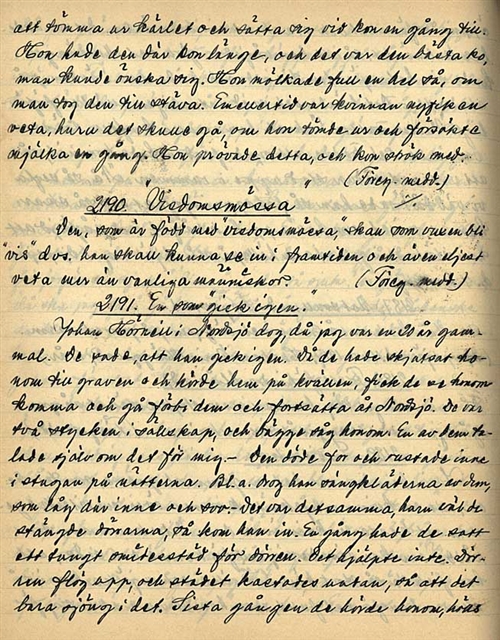 att tömma ur kärlet och sätta sig vid kon en gång till.
Hon hade den där kon länge, och det var den bästa ko,
man kunde önska sig. Hon mölkade full en hel så, om
man tog den till stäva. Emellertid var kvinnan nyfiken
veta, huru det skulle gå, om hon tömde ur och försökte
mjölka en gång. Hon prövade detta, och kon strök med.
(Föreg. medd.)
2190. "Visdomsmössa"
Den, som är född med "visdomsmössa", skall som vuxen bli
"vis" dvs. han skall kunna se in i framtiden och även eljest
veta mer än vanliga människor. (Föreg. medd.)
2191. En som "gick igen."
Johan Hörneil i Nordsjö dog, då jag var en 20 år gam-
mal. De sade, att han gick igen. Då de hade skjutsat ho-
nom till graven och körde hem på kvällen, fick de se honom
komma och gå förbi dem och fortsätta åt Nordsjö. De var
två stycken i sällskap, och bägge såg honom. En av dem ta-
lade själv om det för mig. – Den döde for och rustade inne
i stugan på nätterna. Bl.a. drog han sängkläderna av dem,
som låg där inne och sov. – Det var detsamma, huru väl de
stängde dörarna, så kom han in. En gång hade de satt
ett tungt smidesstäd för dörren. Det hjälpte inte. Dör-
ren flög upp, och städet kastades undan, så att det
bara sjöng i det. Sista gången de hörde honom, höas